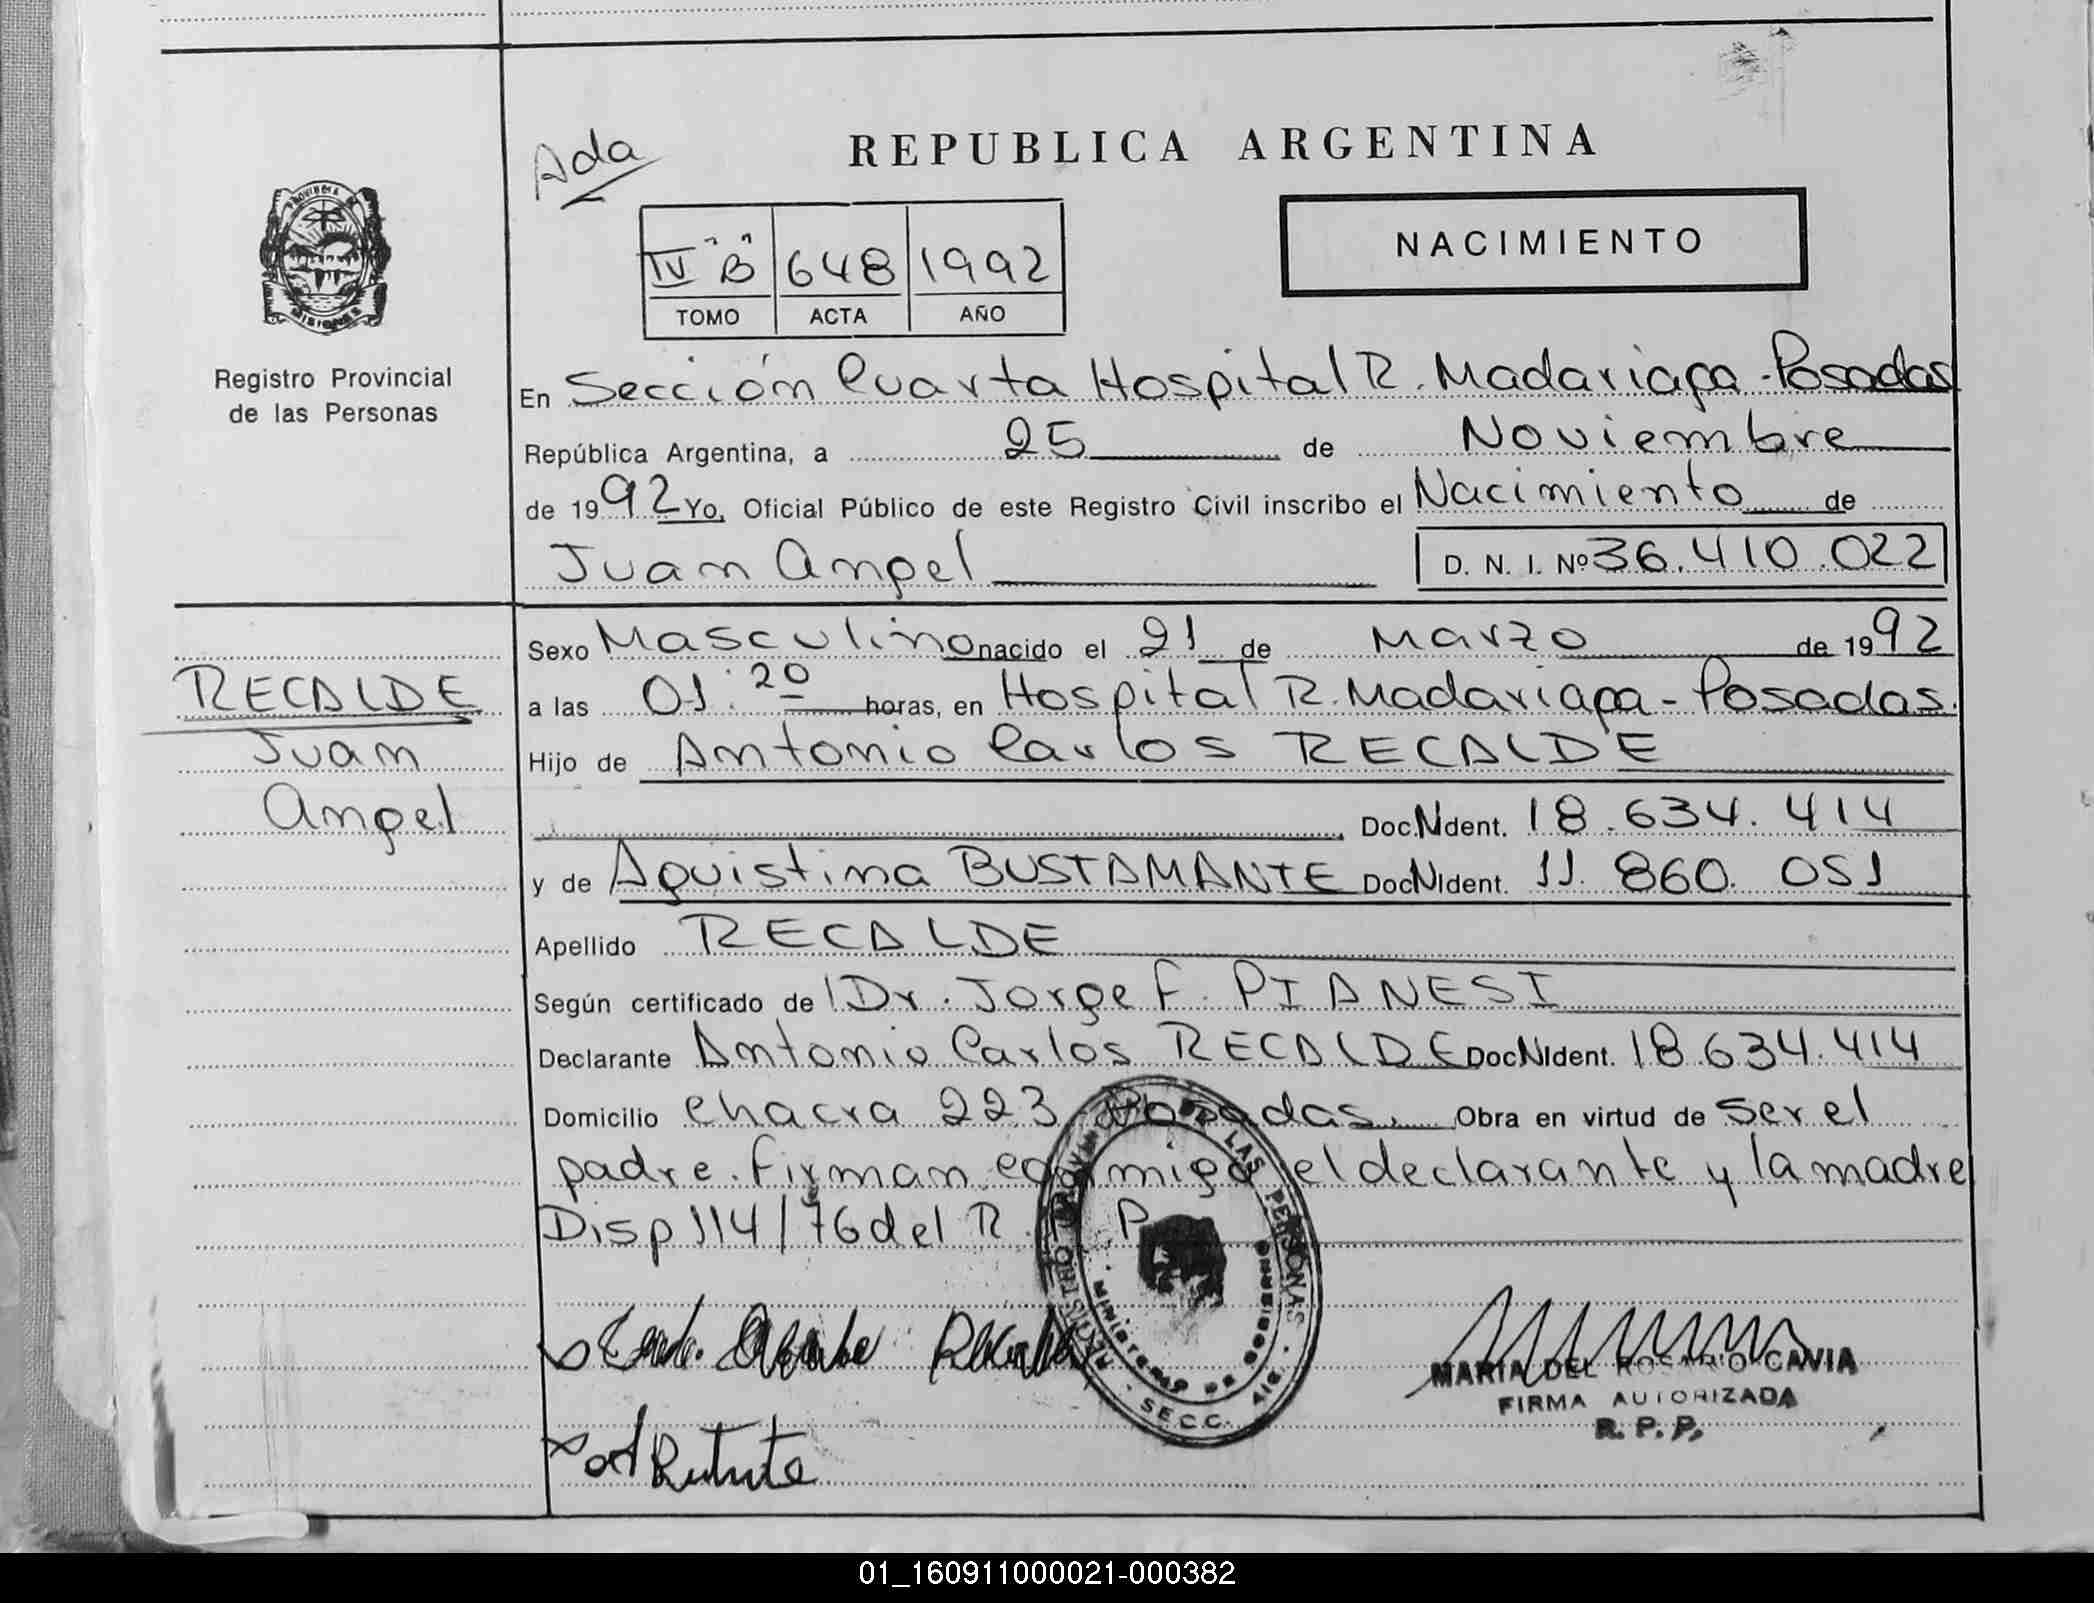 Ada
REPUBLICA ARGENTINA
NACIMIENTO
IV "B" 648 1992
TOMO ACTA AÑO
PROVINCIA DE
MISIONES
Registro Provincial
de las Personas
En Sección Cuarta Hospital R. Madariaga - Posadas
República Argentina, a 25 de Noviembre
de 1992 Yo, Oficial Público de este Registro Civil inscribo el Nacimiento de
Juan Angel D. N. I. Nº 36.410.022
Sexo Masculino nacido el 21 de Marzo de 1992
a las 01:20 horas, en Hospital R. Madariaga - Posadas.
Hijo de Antonio Carlos RECALDE
Doc.NIdent. 18.634.414
y de Aguistina BUSTAMANTE Doc.NIdent. 11.860.051
Apellido RECALDE
Según certificado de Dr. Jorge F. PIANESI
Declarante Antonio Carlos RECALDE Doc.NIdent. 18.634.414
Domicilio Chacra 223 Posadas. Obra en virtud de Ser el
padre. Firman conmigo el declarante y la madre
Disp 114/76 del R. P. P.
RECALDE
Juan
Angel
REGISTRO PROV. DE LAS PERSONAS
MINISTERIO DE GOBIERNO
SECC. 4ta.
MARIA DEL ROSARIO CAVIA
FIRMA AUTORIZADA
R. P. P.
01_160911000021-000382